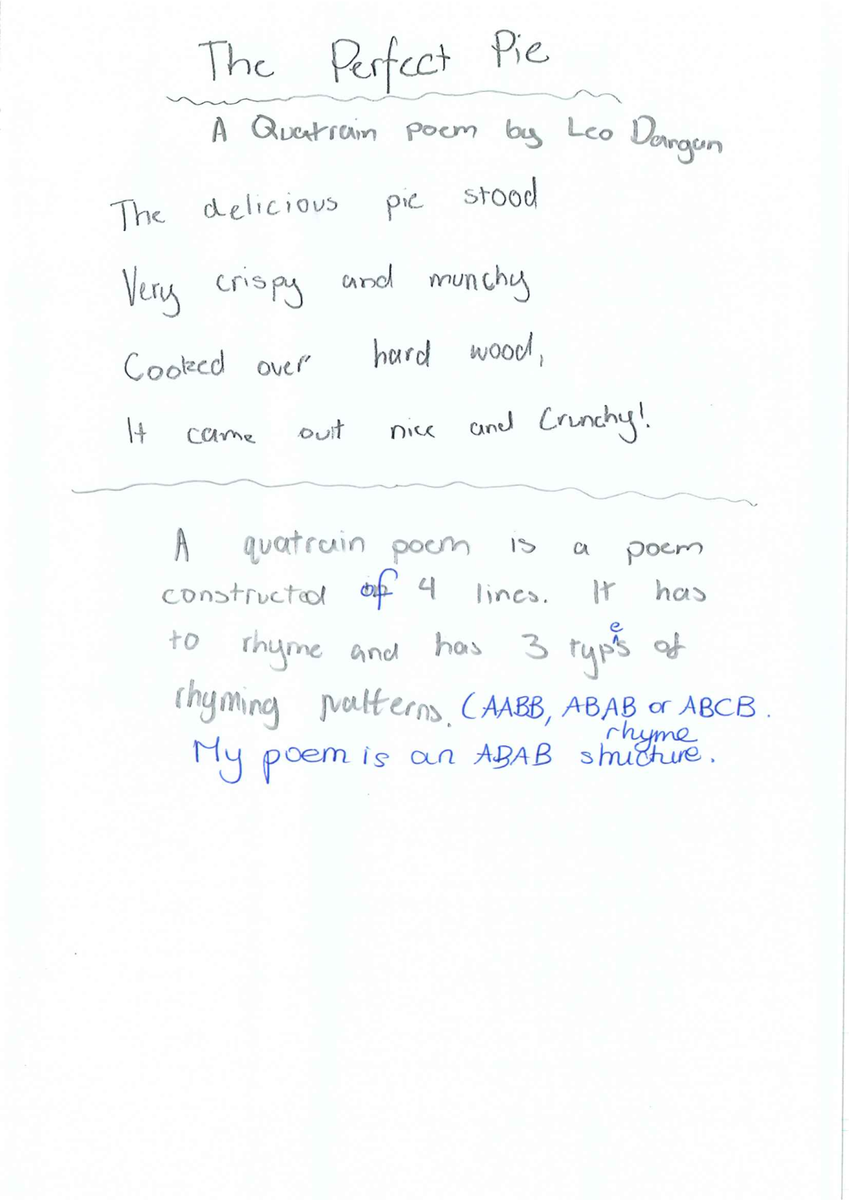 The Perfect Pie
A Quatrain poem by Leo Dargan
The delicious pie stood
Very crispy and munchy
Cooked over hard wood,
It came out nice and Crunchy!
A quatrain poem is a poem
constructed of 4 lines. It has
to rhyme and has 3 types of
rhyming patterns. (AABB, ABAB or ABCB.
My poem is an ABAB rhyme structure.